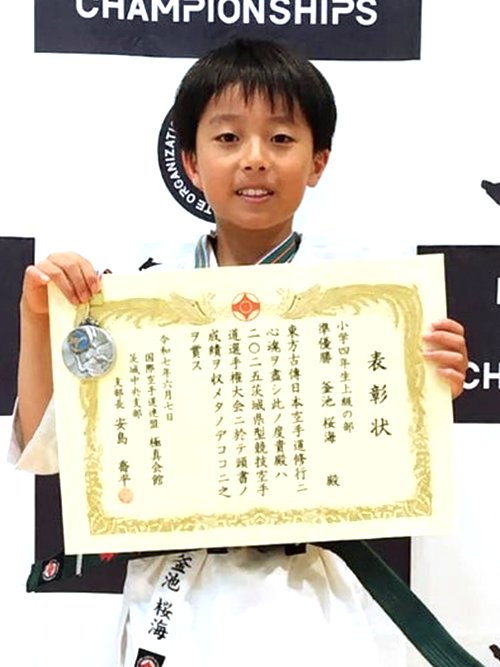 CHAMPIONSHIPS
TE ORGANIZATION
表彰状
小学四年生上級の部
準優勝 釜池 桜海 殿
東方古傳日本空手道修行ニ
心魂ヲ盡シ此ノ度貴殿ハ
二〇二五茨城県型競技空手
道選手権大会ニ於テ頭書ノ
成績ヲ収メタノデココニ之
ヲ賞ス
令和七年六月七日
国際空手道連盟 極真会館
茨城中央支部
支部長 安島 喬平
釜池 桜海